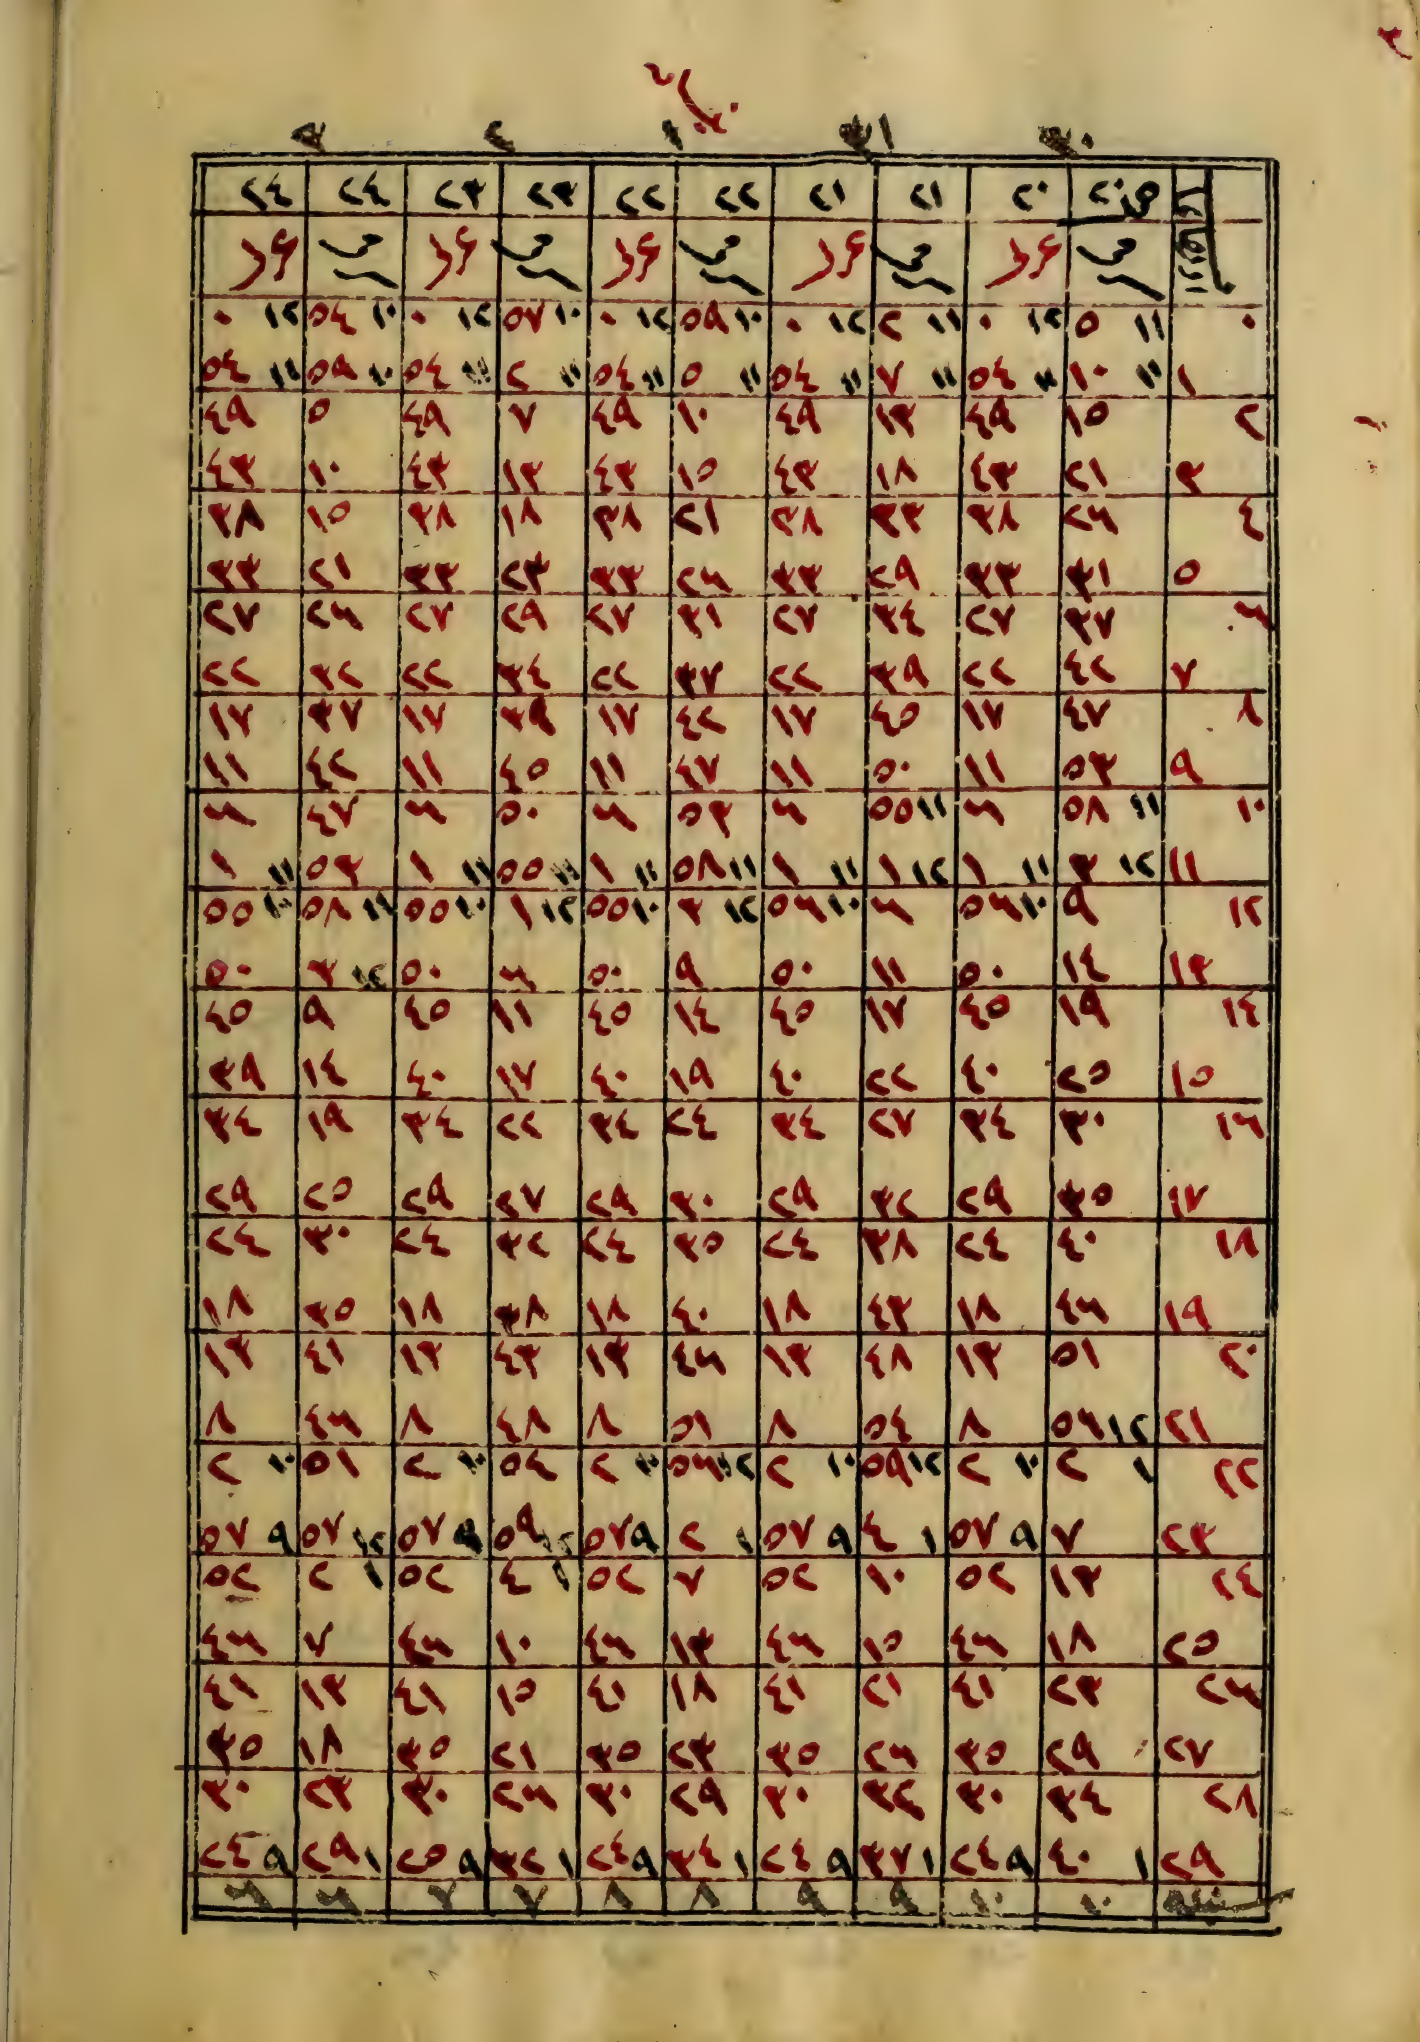 ٣٠ ٣١ ١ ٢ ٣
٢٠ ٢٠ ٢١ ٢١ ٢٢ ٢٢ ٢٣ ٢٣ ٢٤ ٢٤
٠ ١١ ٥ ١٢ ٠ ١١ ٢ ١٢ ٠ ١٠ ٥٩ ١٢ ٠ ١٠ ٥٧ ١٢ ٠ ١٠ ٥٤ ١٢ ٠
١ ١١ ١٠ ١١ ٥٤ ١١ ٧ ١١ ٥٤ ١١ ٥ ١١ ٥٤ ١١ ٢ ١١ ٥٤ ١٠ ٥٩ ١١ ٥٤
٢ ١٥ ٤٩ ١٣ ٤٩ ١٠ ٤٩ ٧ ٤٩ ٥ ٤٩
٣ ٢١ ٤٣ ١٨ ٤٣ ١٥ ٤٣ ١٣ ٤٣ ١٠ ٤٣
٤ ٢٦ ٣٨ ٢٣ ٣٨ ٢١ ٣٨ ١٨ ٣٨ ١٥ ٣٨
٥ ٣١ ٣٣ ٢٩ ٣٣ ٢٦ ٣٣ ٢٣ ٣٣ ٢١ ٣٣
٦ ٣٧ ٢٧ ٣٤ ٢٧ ٣١ ٢٧ ٢٩ ٢٧ ٢٦ ٢٧
٧ ٤٢ ٢٢ ٣٩ ٢٢ ٣٧ ٢٢ ٣٤ ٢٢ ٣٢ ٢٢
٨ ٤٧ ١٧ ٤٥ ١٧ ٤٢ ١٧ ٣٩ ١٧ ٣٧ ١٧
٩ ٥٣ ١١ ٥٠ ١١ ٤٧ ١١ ٤٥ ١١ ٤٢ ١١
١٠ ١١ ٥٨ ٦ ١١ ٥٥ ٦ ٥٣ ٦ ٥٠ ٦ ٤٧ ٦
١١ ١٢ ٣ ١١ ١ ١٢ ١ ١١ ١ ١١ ٥٨ ١١ ١ ١١ ٥٥ ١١ ١ ٥٣ ١١ ١
١٢ ٩ ١٠ ٥٦ ٦ ١٠ ٥٦ ١٢ ٣ ١٠ ٥٥ ١٢ ١ ١٠ ٥٥ ١١ ٥٨ ١٠ ٥٥
١٣ ١٤ ٥٠ ١١ ٥٠ ٩ ٥٠ ٦ ٥٠ ١٢ ٣ ٥٠
١٤ ١٩ ٤٥ ١٧ ٤٥ ١٤ ٤٥ ١١ ٤٥ ٩ ٤٥
١٥ ٢٥ ٤٠ ٢٢ ٤٠ ١٩ ٤٠ ١٧ ٤٠ ١٤ ٣٩
١٦ ٣٠ ٣٤ ٢٧ ٣٤ ٢٤ ٣٤ ٢٢ ٣٤ ١٩ ٣٤
١٧ ٣٥ ٢٩ ٣٢ ٢٩ ٣٠ ٢٩ ٢٧ ٢٩ ٢٥ ٢٩
١٨ ٤٠ ٢٤ ٣٨ ٢٤ ٣٥ ٢٤ ٣٢ ٢٤ ٣٠ ٢٤
١٩ ٤٦ ١٨ ٤٣ ١٨ ٤٠ ١٨ ٣٨ ١٨ ٣٥ ١٨
٢٠ ٥١ ١٣ ٤٨ ١٣ ٤٦ ١٣ ٤٣ ١٣ ٤١ ١٣
٢١ ١٢ ٥٦ ٨ ٥٤ ٨ ٥١ ٨ ٤٨ ٨ ٤٦ ٨
٢٢ ١ ٢ ١٠ ٢ ١٢ ٥٩ ١٠ ٢ ١٢ ٥٦ ١٠ ٢ ٥٤ ١٠ ٢ ٥١ ١٠ ٢
٢٣ ٧ ٩ ٥٧ ١ ٤ ٩ ٥٧ ١ ٢ ٩ ٥٧ ١٢ ٥٩ ٩ ٥٧ ١٢ ٥٧ ٩ ٥٧
٢٤ ١٣ ٥٢ ١٠ ٥٢ ٧ ٥٢ ١ ٤ ٥٢ ١ ٢ ٥٢
٢٥ ١٨ ٤٦ ١٥ ٤٦ ١٣ ٤٦ ١٠ ٤٦ ٧ ٤٦
٢٦ ٢٣ ٤١ ٢١ ٤١ ١٨ ٤١ ١٥ ٤١ ١٣ ٤١
٢٧ ٢٩ ٣٥ ٢٦ ٣٥ ٢٣ ٣٥ ٢١ ٣٥ ١٨ ٣٥
٢٨ ٣٤ ٣٠ ٣٢ ٣٠ ٢٩ ٣٠ ٢٦ ٣٠ ٢٣ ٣٠
٢٩ ١ ٤٠ ٩ ٢٤ ١ ٣٧ ٩ ٢٤ ١ ٣٤ ٩ ٢٤ ١ ٣٢ ٩ ٢٥ ١ ٢٩ ٩ ٢٤
١٠ ١٠ ٩ ٩ ٨ ٨ ٧ ٧ ٦ ٦